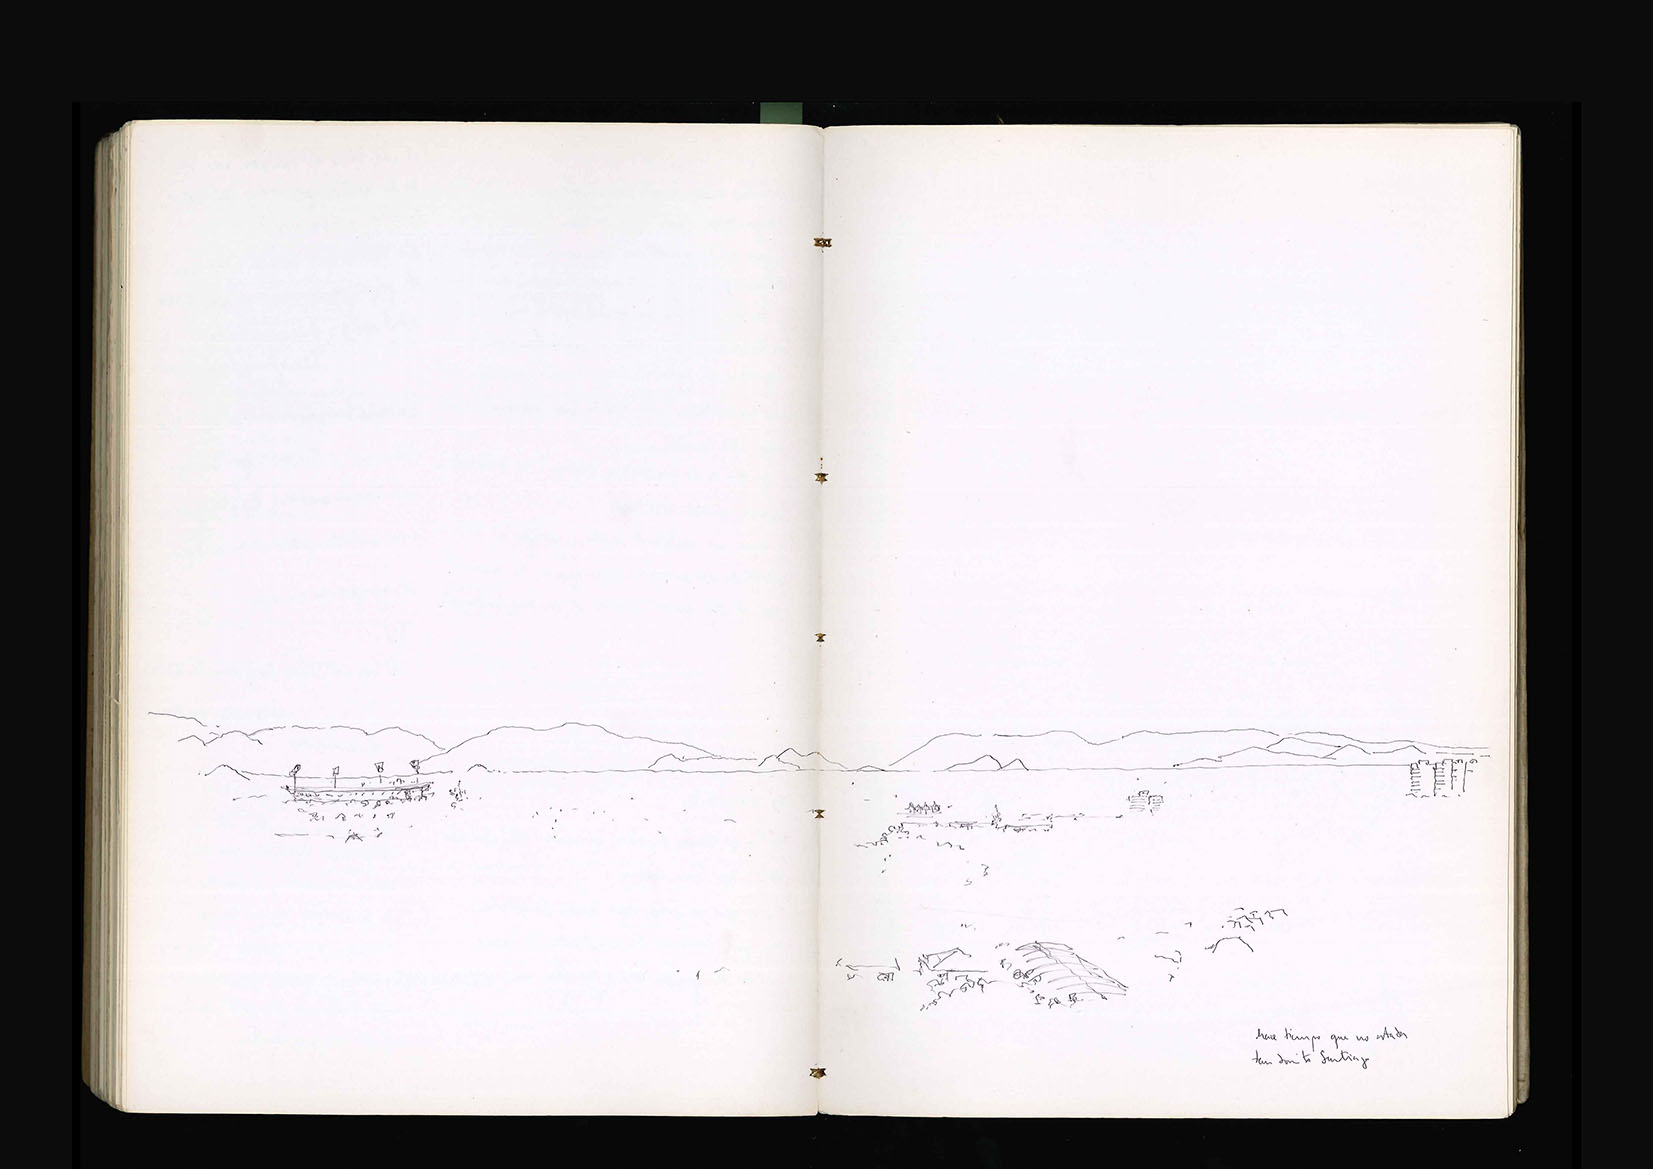 hace tiempo que no estaba
tan bonito Santiago